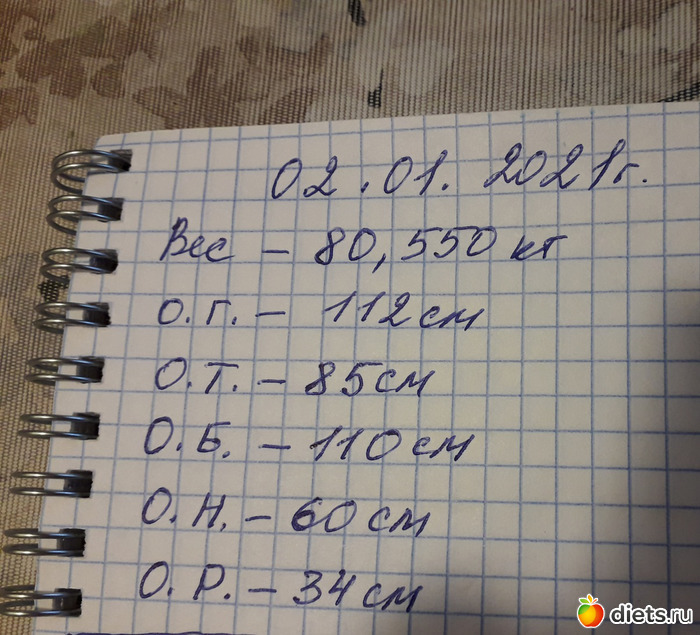 02.01.2021г.
Вес - 80,550 кг
О.Г. - 112 см
О.Т. - 85 см
О.Б. - 110 см
О.Н. - 60 см
О.Р. - 34 см
diets.ru